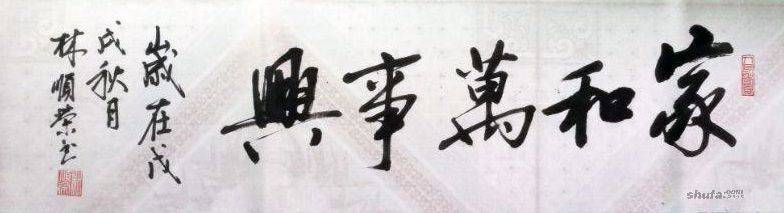 家和萬事興
歲在戊
戌秋月
林順榮书
shufa.com